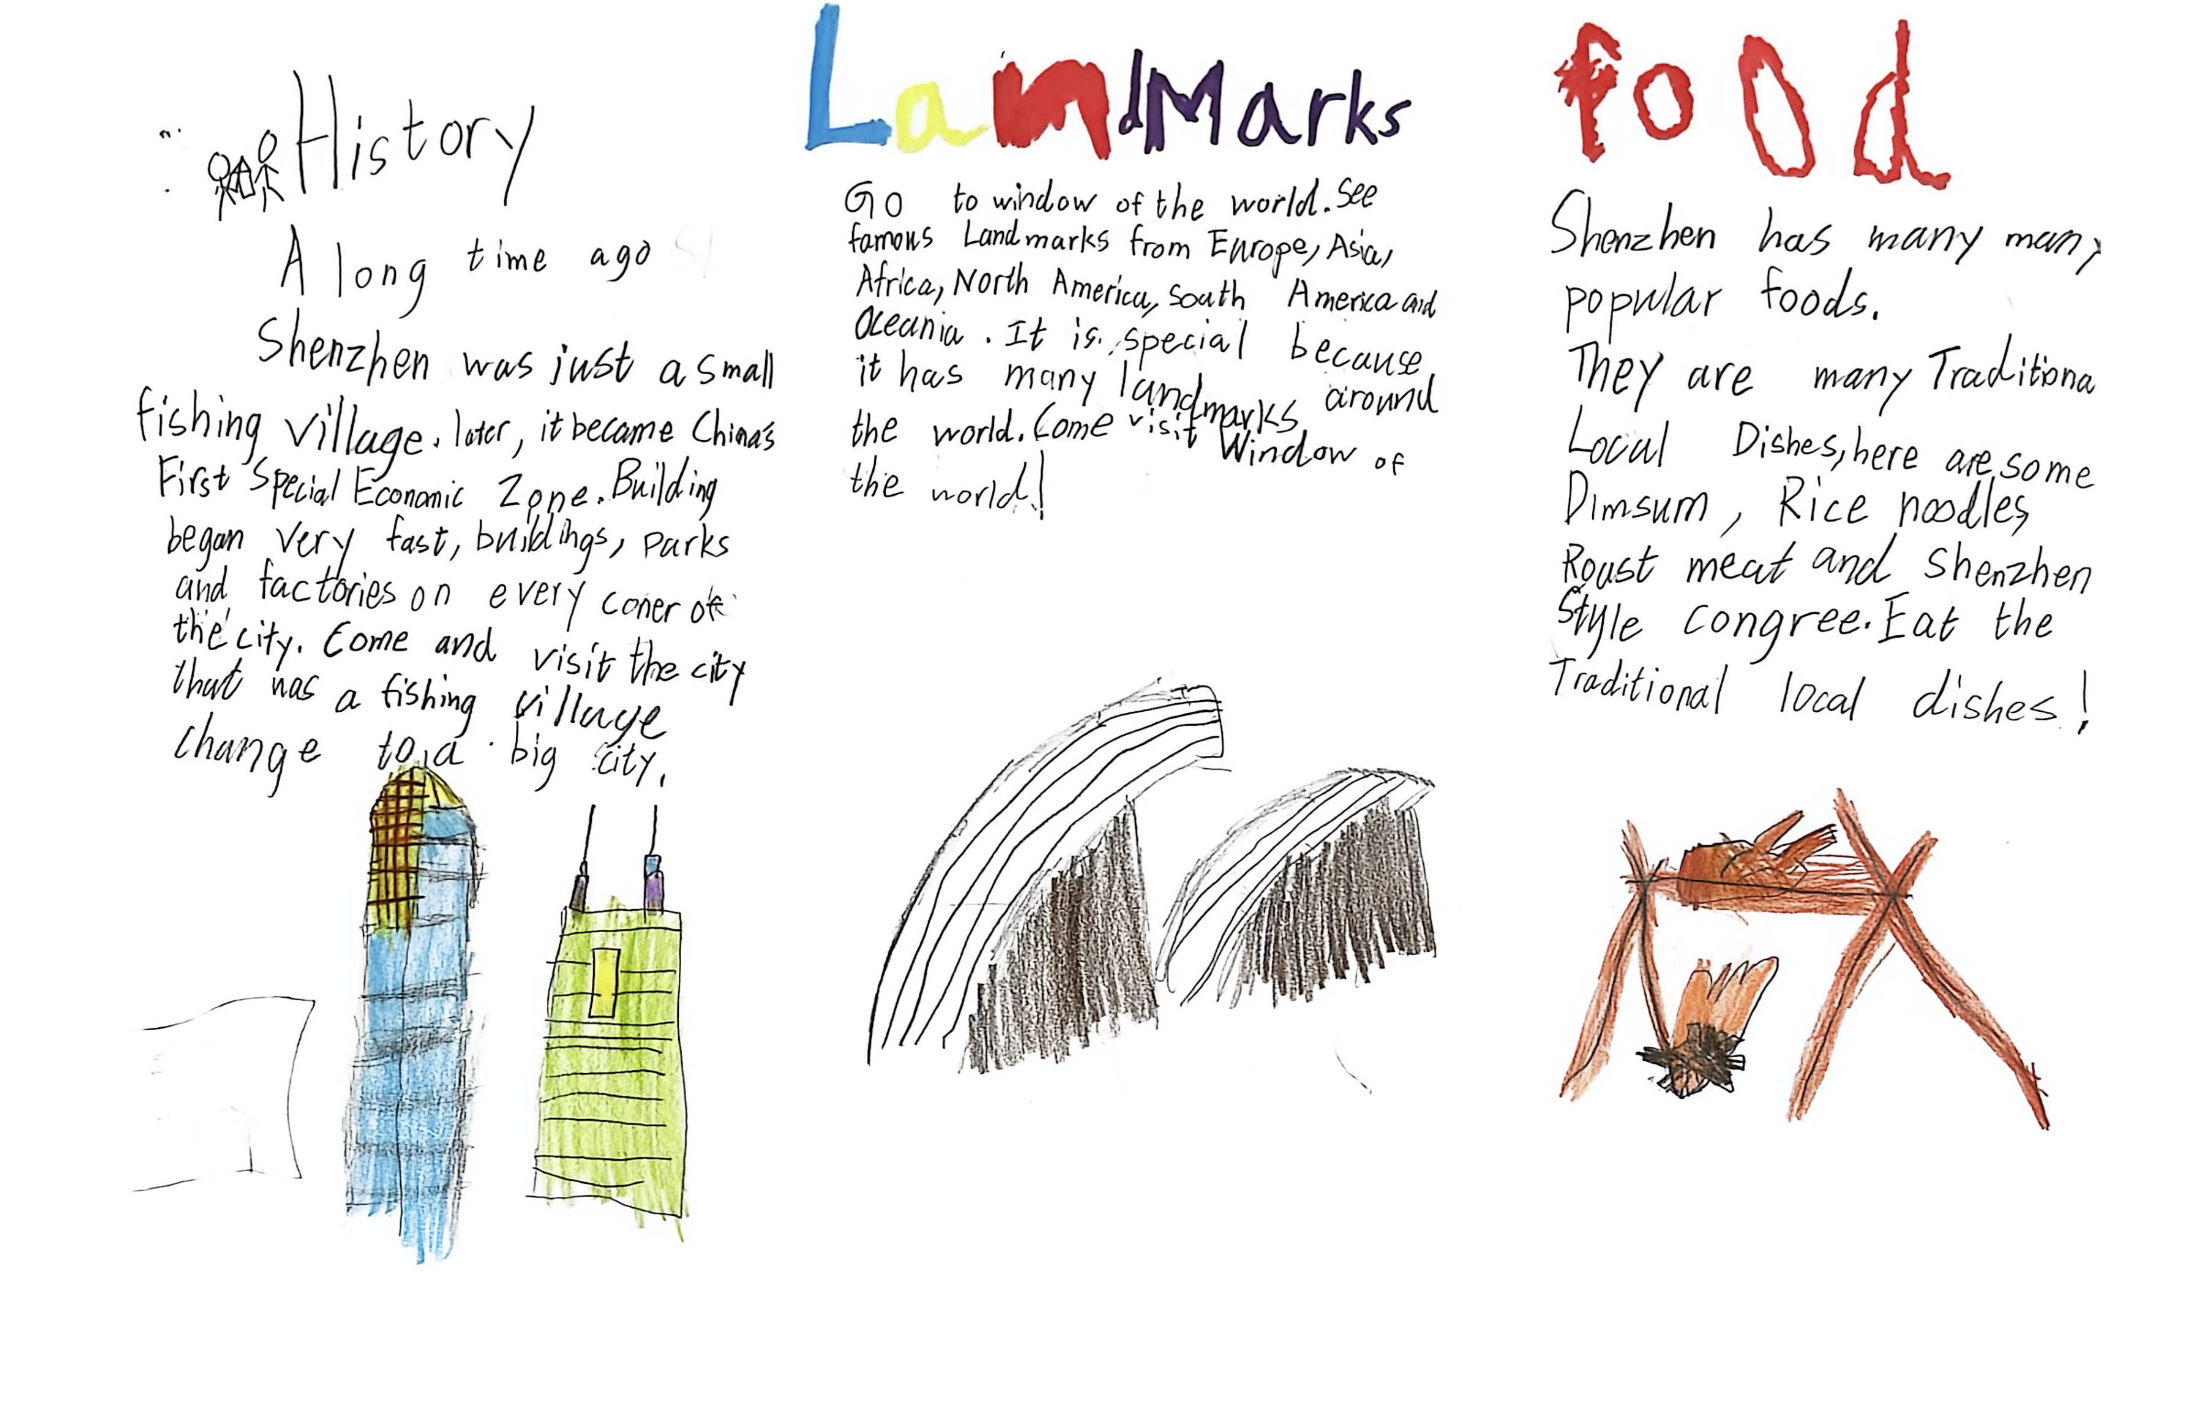 History
A long time ago
Shenzhen was just a small
fishing village. later, it became China's
First Special Economic Zone. Building
began very fast, buildings, parks
and factories on every coner of
the city. Come and visit the city
that was a fishing village
change to a big city.
LandMarks
Go to window of the world. See
famous Landmarks from Europe, Asia,
Africa, North America, South America and
Oceania. It is special because
it has many landmarks around
the world. Come visit Window of
the world!
food
Shenzhen has many many
popular foods.
They are many Traditiona
Local Dishes, here are some
Dimsum, Rice noodles,
Roast meat and Shenzhen
Style congree. Eat the
Traditional local dishes!